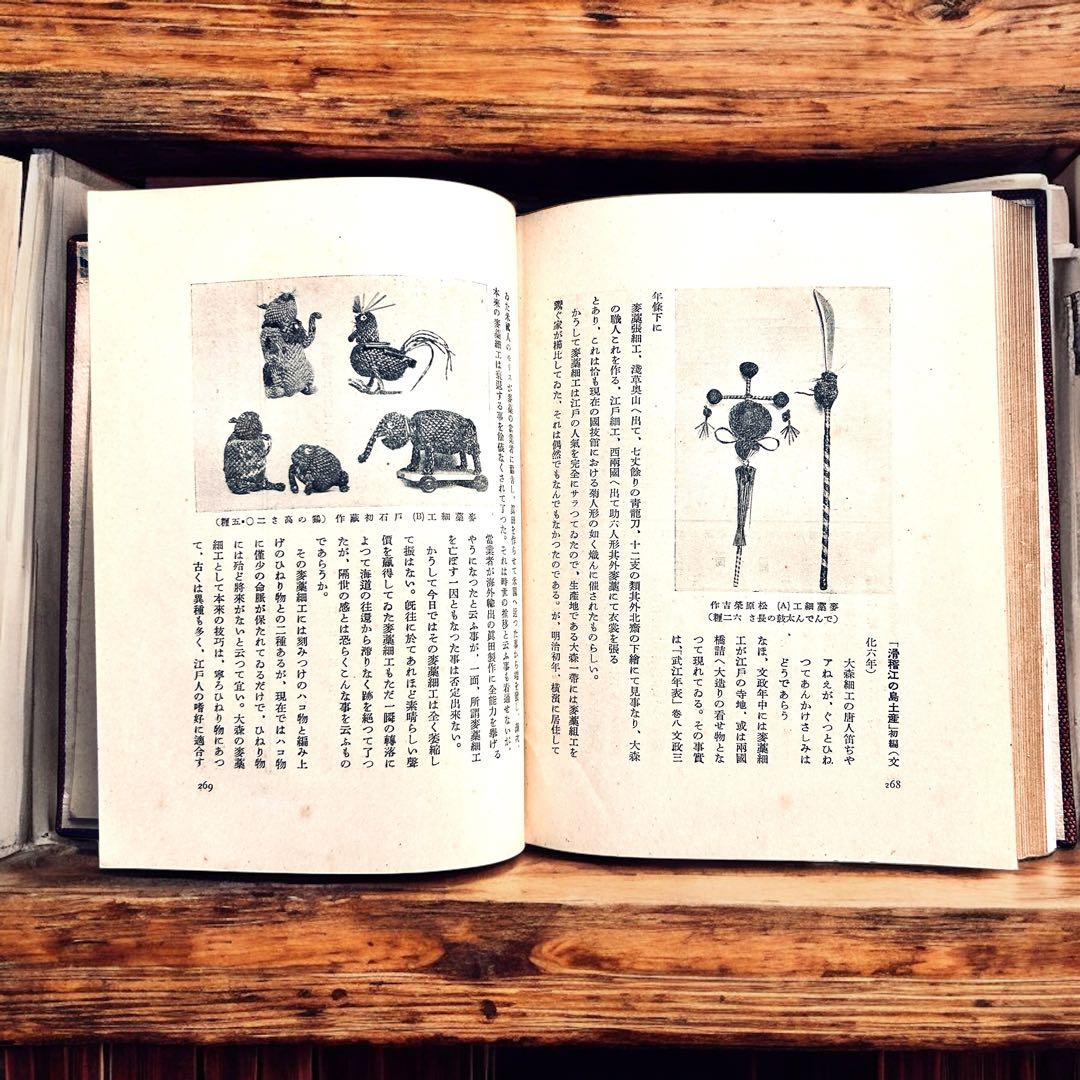 「滑稽江の島土産」初編(文
化六年)
大森細工の唐人笛ぢや
アねえが、ぐつとひね
つてあんかけさしみは
どうであらう
なほ、文政年中には麥藁細
工が江戸の寺地、或は兩國
橋詰へ大造りの看せ物とな
つて現れてゐる。その事實
は、「武江年表」卷八文政三
麥藁細工(A) 松原榮吉作
(でんでん太鼓の長さ 六二糎)
年條下に
麥藁張細工、淺草奧山へ出て、七丈餘りの靑龍刀、十二支の類其外北齋の下繪にて見事なり、大森
の職人これを作る。江戸細工、西兩國へ出て助六人形其外麥藁にて衣裳を張る
とあり、これは恰も現在の國技館における菊人形の如く熾んに催されたものらしい。
かうして麥藁細工は江戸の人氣を完全にサラつてゐたので、生產地である大森一帶には麥藁細工を
鬻ぐ家が櫛比してゐた。それは偶然でもなんでもなかつたのである。が、明治初年、橫濱に居住して
268
ゐた米國人の
本來の麥藁細工は衰退する事を餘儀なくされて了つた。それは時世の推移と云ふ事も看過せないが、
當業者が海外輸出の眞田製作に全能力を擧げる
やうになつたと云ふ事が、一面、所謂麥藁細工
を亡ぼす一因ともなつた事は否定出來ない。
かうして今日ではその麥藁細工は全く萎縮し
て振はない。旣往に於てあれほど素晴らしい聲
價を贏得してゐた麥藁細工もただ一瞬の轉落に
よつて海道の往還から滯りなく跡を絕つて了つ
たが、隔世の感とは恐らくこんな事を云ふもの
であらうか。
その麥藁細工には刻みつけのハコ物と編み上
げのひねり物との二種あるが、現在ではハコ物
に僅少の命脈が保たれてゐるだけで、ひねり物
には殆ど將來がないと云つて宜い。大森の麥藁
細工として本來の技巧は、寧ろひねり物にあつ
て、古くは異種も多く、江戸人の嗜好に適合す
麥藁細工(B) 戸石初藏作 (鷄の高さ二〇・五糎)
269